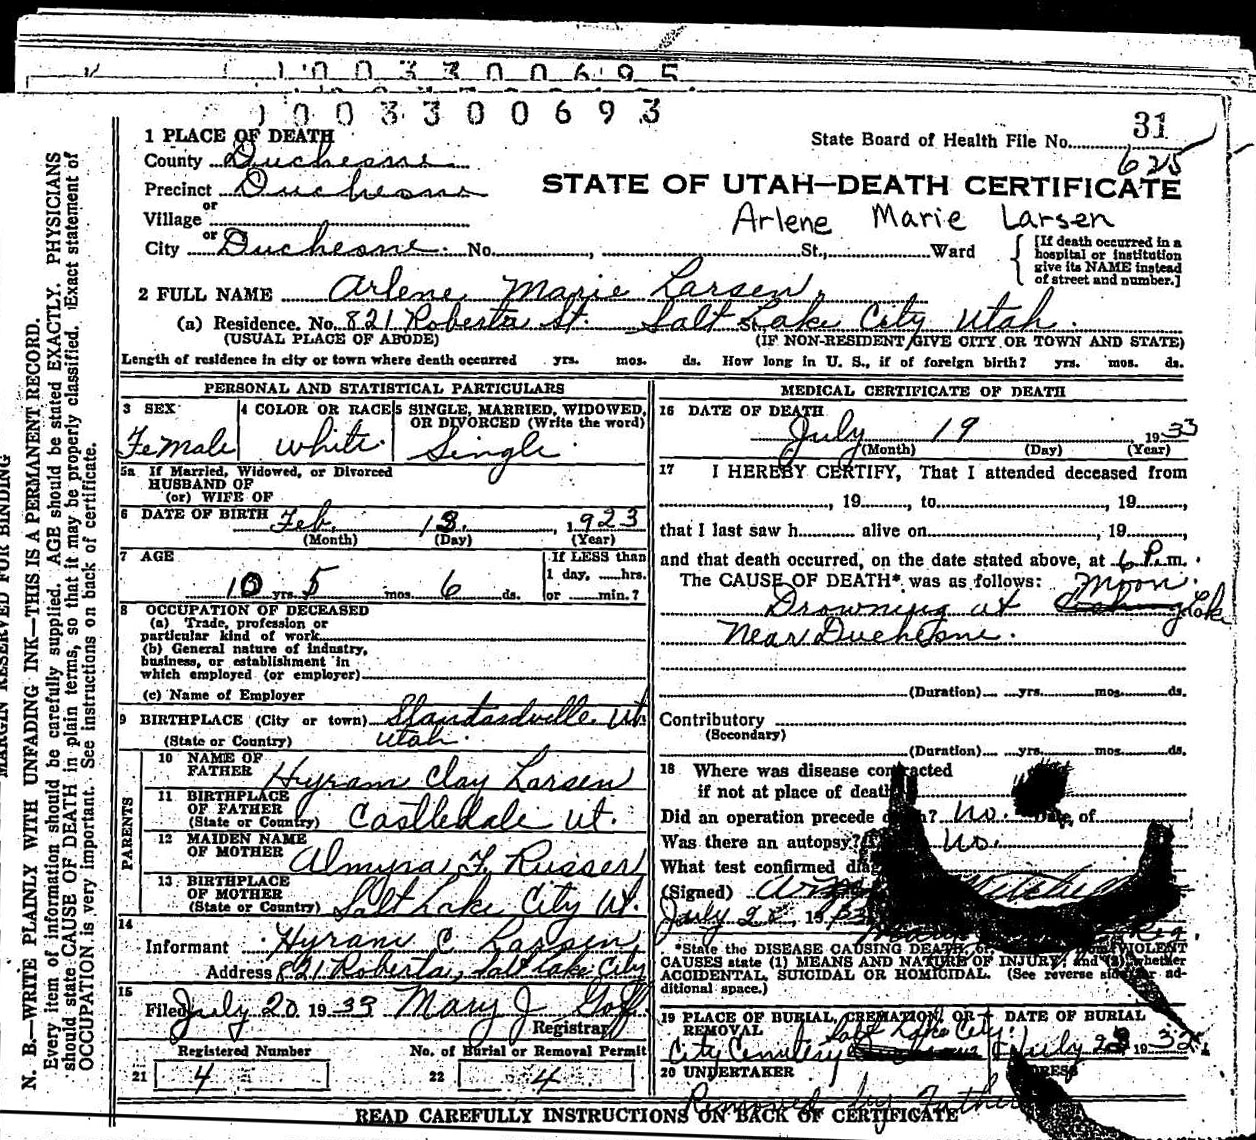 1003300695
1003300693
31
State Board of Health File No.
625
1 PLACE OF DEATH
County Duchesne
Precinct Duchesne
STATE OF UTAH—DEATH CERTIFICATE
or
Village
Arlene Marie Larsen
or
City Duchesne. No. , St., Ward
[If death occurred in a hospital or institution give its NAME instead of street and number.]
2 FULL NAME Arlene Marie Larsen.
(a) Residence. No. 821 Roberta St. St. Salt Lake City Utah.
(USUAL PLACE OF ABODE) (IF NON-RESIDENT GIVE CITY OR TOWN AND STATE)
Length of residence in city or town where death occurred yrs. mos. ds. How long in U. S., if of foreign birth? yrs. mos. ds.
PERSONAL AND STATISTICAL PARTICULARS
3 SEX 4 COLOR OR RACE 5 SINGLE, MARRIED, WIDOWED, OR DIVORCED (Write the word)
Female White. Single
5a If Married, Widowed, or Divorced
HUSBAND OF
(or) WIFE OF
6 DATE OF BIRTH Feb. 13. , 1923
(Month) (Day) (Year)
7 AGE If LESS than
1 day, hrs.
10 yrs. 5 mos. 6 ds. or min.?
8 OCCUPATION OF DECEASED
(a) Trade, profession or
particular kind of work
(b) General nature of industry,
business, or establishment in
which employed (or employer)
(c) Name of Employer
9 BIRTHPLACE (City or town) Standardville Ut.
(State or Country) Utah.
PARENTS
10 NAME OF FATHER Hyram Clay Larsen
11 BIRTHPLACE OF FATHER (State or Country) Castledale Ut.
12 MAIDEN NAME OF MOTHER Almyra F. Russer
13 BIRTHPLACE OF MOTHER (State or Country) Salt Lake City Ut.
14
Informant Hyram C Larsen
Address 821 Roberta, Salt Lake City
15
Filed July 20 1933 Mary J Goff
Registrar
Registered Number No. of Burial or Removal Permit
21 4 22 4
MEDICAL CERTIFICATE OF DEATH
16 DATE OF DEATH
July 19 , 1933
(Month) (Day) (Year)
17 I HEREBY CERTIFY, That I attended deceased from
, 19 , to , 19 ,
that I last saw h alive on , 19 ,
and that death occurred, on the date stated above, at 6 P.m.
The CAUSE OF DEATH* was as follows: Moon
Drowning at Lake
Near Duchesne.
(Duration) yrs. mos. ds.
Contributory
(Secondary)
(Duration) yrs. mos. ds.
18 Where was disease contracted
if not at place of death
Did an operation precede death? No. Date of
Was there an autopsy? No.
What test confirmed
(Signed)
July 20, 1933
*State the DISEASE CAUSING DEATH, or VIOLENT
CAUSES state (1) MEANS AND NATURE OF INJURY, and (2) whether
ACCIDENTAL, SUICIDAL OR HOMICIDAL. (See reverse side for ad-
ditional space.)
19 PLACE OF BURIAL, CREMATION, OR REMOVAL DATE OF BURIAL
Salt Lake City.
City Cemetery July 23 1933
20 UNDERTAKER
Removed by Father
READ CAREFULLY INSTRUCTIONS ON BACK OF CERTIFICATE
MARGIN RESERVED FOR BINDING
N. B.—WRITE PLAINLY WITH UNFADING INK—THIS IS A PERMANENT RECORD.
Every item of information should be carefully supplied. AGE should be stated EXACTLY. PHYSICIANS
should state CAUSE OF DEATH in plain terms, so that it may be properly classified. Exact statement of
OCCUPATION is very important. See instructions on back of certificate.